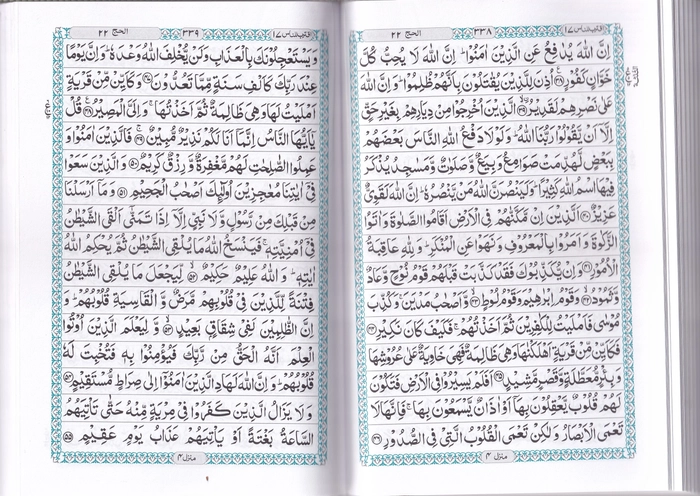 اقترب للناس ۱۷
۳۳۸
الحج ۲۲
اِنَّ اللّٰهَ یُدٰفِعُ عَنِ الَّذِیْنَ اٰمَنُوْا ؕ اِنَّ اللّٰهَ لَا یُحِبُّ كُلَّ
خَوَّانٍ كَفُوْرٍ ﴿۳۸﴾ اُذِنَ لِلَّذِیْنَ یُقٰتَلُوْنَ بِاَنَّهُمْ ظُلِمُوْا ؕ وَ اِنَّ اللّٰهَ
عَلٰی نَصْرِهِمْ لَقَدِیْرُ ﴿۳۹﴾ الَّذِیْنَ اُخْرِجُوْا مِنْ دِیَارِهِمْ بِغَیْرِ حَقٍّ
اِلَّاۤ اَنْ یَّقُوْلُوْا رَبُّنَا اللّٰهُ ؕ وَ لَوْ لَا دَفْعُ اللّٰهِ النَّاسَ بَعْضَهُمْ
بِبَعْضٍ لَّهُدِّمَتْ صَوَامِعُ وَ بِیَعٌ وَّ صَلَوٰتٌ وَّ مَسٰجِدُ یُذْكَرُ
فِیْهَا اسْمُ اللّٰهِ كَثِیْرًا ؕ وَ لَیَنْصُرَنَّ اللّٰهُ مَنْ یَّنْصُرُهٗ ؕ اِنَّ اللّٰهَ لَقَوِیٌّ
عَزِیْزٌ ﴿۴۰﴾ اَلَّذِیْنَ اِنْ مَّكَّنّٰهُمْ فِی الْاَرْضِ اَقَامُوا الصَّلٰوةَ وَ اٰتَوُا
الزَّكٰوةَ وَ اَمَرُوْا بِالْمَعْرُوْفِ وَ نَهَوْا عَنِ الْمُنْكَرِ ؕ وَ لِلّٰهِ عَاقِبَةُ
الْاُمُوْرِ ﴿۴۱﴾ وَ اِنْ یُّكَذِّبُوْكَ فَقَدْ كَذَّبَتْ قَبْلَهُمْ قَوْمُ نُوْحٍ وَّ عَادٌ
وَّ ثَمُوْدُ ﴿۴۲﴾ وَ قَوْمُ اِبْرٰهِیْمَ وَ قَوْمُ لُوْطٍ ﴿۴۳﴾ وَّ اَصْحٰبُ مَدْیَنَ ۚ وَ كُذِّبَ
مُوْسٰی فَاَمْلَیْتُ لِلْكٰفِرِیْنَ ثُمَّ اَخَذْتُهُمْ ۚ فَكَیْفَ كَانَ نَكِیْرِ ﴿۴۴﴾
فَكَاَیِّنْ مِّنْ قَرْیَةٍ اَهْلَكْنٰهَا وَ هِیَ ظَالِمَةٌ فَهِیَ خَاوِیَةٌ عَلٰی عُرُوْشِهَا
وَ بِئْرٍ مُّعَطَّلَةٍ وَّ قَصْرٍ مَّشِیْدٍ ﴿۴۵﴾ اَفَلَمْ یَسِیْرُوْا فِی الْاَرْضِ فَتَكُوْنَ
لَهُمْ قُلُوْبٌ یَّعْقِلُوْنَ بِهَاۤ اَوْ اٰذَانٌ یَّسْمَعُوْنَ بِهَا ۚ فَاِنَّهَا لَا
تَعْمَی الْاَبْصَارُ وَ لٰكِنْ تَعْمَی الْقُلُوْبُ الَّتِیْ فِی الصُّدُوْرِ ﴿۴۶﴾
منزل ۴
اقترب للناس ۱۷
۳۳۹
الحج ۲۲
وَ یَسْتَعْجِلُوْنَكَ بِالْعَذَابِ وَ لَنْ یُّخْلِفَ اللّٰهُ وَعْدَهٗ ؕ وَ اِنَّ یَوْمًا
عِنْدَ رَبِّكَ كَاَلْفِ سَنَةٍ مِّمَّا تَعُدُّوْنَ ﴿۴۷﴾ وَ كَاَیِّنْ مِّنْ قَرْیَةٍ
اَمْلَیْتُ لَهَا وَ هِیَ ظَالِمَةٌ ثُمَّ اَخَذْتُهَا ۚ وَ اِلَیَّ الْمَصِیْرُ ﴿۴۸﴾ قُلْ
یٰۤاَیُّهَا النَّاسُ اِنَّمَاۤ اَنَا لَكُمْ نَذِیْرٌ مُّبِیْنٌ ﴿۴۹﴾ فَالَّذِیْنَ اٰمَنُوْا وَ
عَمِلُوا الصّٰلِحٰتِ لَهُمْ مَّغْفِرَةٌ وَّ رِزْقٌ كَرِیْمٌ ﴿۵۰﴾ وَ الَّذِیْنَ سَعَوْا
فِیْۤ اٰیٰتِنَا مُعٰجِزِیْنَ اُولٰٓىِٕكَ اَصْحٰبُ الْجَحِیْمِ ﴿۵۱﴾ وَ مَاۤ اَرْسَلْنَا
مِنْ قَبْلِكَ مِنْ رَّسُوْلٍ وَّ لَا نَبِیٍّ اِلَّاۤ اِذَا تَمَنّٰۤی اَلْقَی الشَّیْطٰنُ
فِیْۤ اُمْنِیَّتِهٖ ۚ فَیَنْسَخُ اللّٰهُ مَا یُلْقِی الشَّیْطٰنُ ثُمَّ یُحْكِمُ اللّٰهُ
اٰیٰتِهٖ ؕ وَ اللّٰهُ عَلِیْمٌ حَكِیْمٌ ﴿۵۲﴾ لِّیَجْعَلَ مَا یُلْقِی الشَّیْطٰنُ
فِتْنَةً لِّلَّذِیْنَ فِیْ قُلُوْبِهِمْ مَّرَضٌ وَّ الْقَاسِیَةِ قُلُوْبُهُمْ ؕ وَ
اِنَّ الظّٰلِمِیْنَ لَفِیْ شِقَاقٍۭ بَعِیْدٍ ﴿۵۳﴾ وَّ لِیَعْلَمَ الَّذِیْنَ اُوْتُوا
الْعِلْمَ اَنَّهُ الْحَقُّ مِنْ رَّبِّكَ فَیُؤْمِنُوْا بِهٖ فَتُخْبِتَ لَهٗ
قُلُوْبُهُمْ ؕ وَ اِنَّ اللّٰهَ لَهَادِ الَّذِیْنَ اٰمَنُوْۤا اِلٰی صِرَاطٍ مُّسْتَقِیْمٍ ﴿۵۴﴾
وَ لَا یَزَالُ الَّذِیْنَ كَفَرُوْا فِیْ مِرْیَةٍ مِّنْهُ حَتّٰی تَاْتِیَهُمُ
السَّاعَةُ بَغْتَةً اَوْ یَاْتِیَهُمْ عَذَابُ یَوْمٍ عَقِیْمٍ ﴿۵۵﴾
منزل ۴